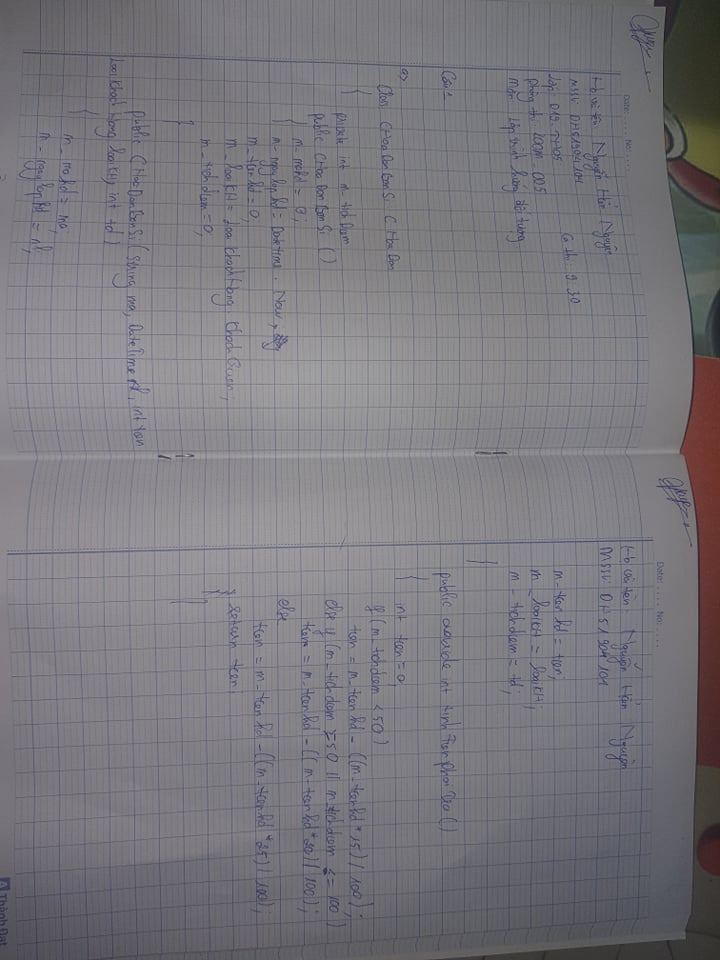 Date: ..... No: .....
Họ và tên: Nguyễn Hân Nguyên
MSSV: DH51904101
Lớp D19_TH05 Ca thi: 9.30
phòng thi: Zoom 005
môn: Lập trình hướng đối tượng
Câu 1
a)
Class CHoaDonBanSi: CHoaDon
{
private int m_tichdiem
public CHoaDonBanSi ()
{ m_mahd = 0;
m_ngaylaphd = DateTime.Now;
m_tienhd = 0;
m_loaiKH = LoaiKhachHang.KhachQuen;
m_tichdiem = 0;
}
public CHoaDonBanSi (String ma, DateTime nl, int tien
LoaiKhachHang loaiKH, int td)
{
m_mahd = ma;
m_ngaylaphd = nl;
Date: ..... No: .....
Họ và tên: Nguyễn Hân Nguyên
MSSV: DH51904101
m_tienhd = tien;
m_loaiKH = loaiKH;
m_tichdiem = td;
}
public override int tinhTienphaiTra ()
{
int tien = 0;
if (m_tichdiem < 50)
tien = m_tienhd - ((m_tienhd * 15) / 100);
else if (m_tichdiem >= 50 || m_tichdiem <= 100)
tien = m_tienhd - ((m_tienhd * 20) / 100);
else
tien = m_tienhd - ((m_tienhd * 25) / 100);
return tien;
}
}
Thành Đạt